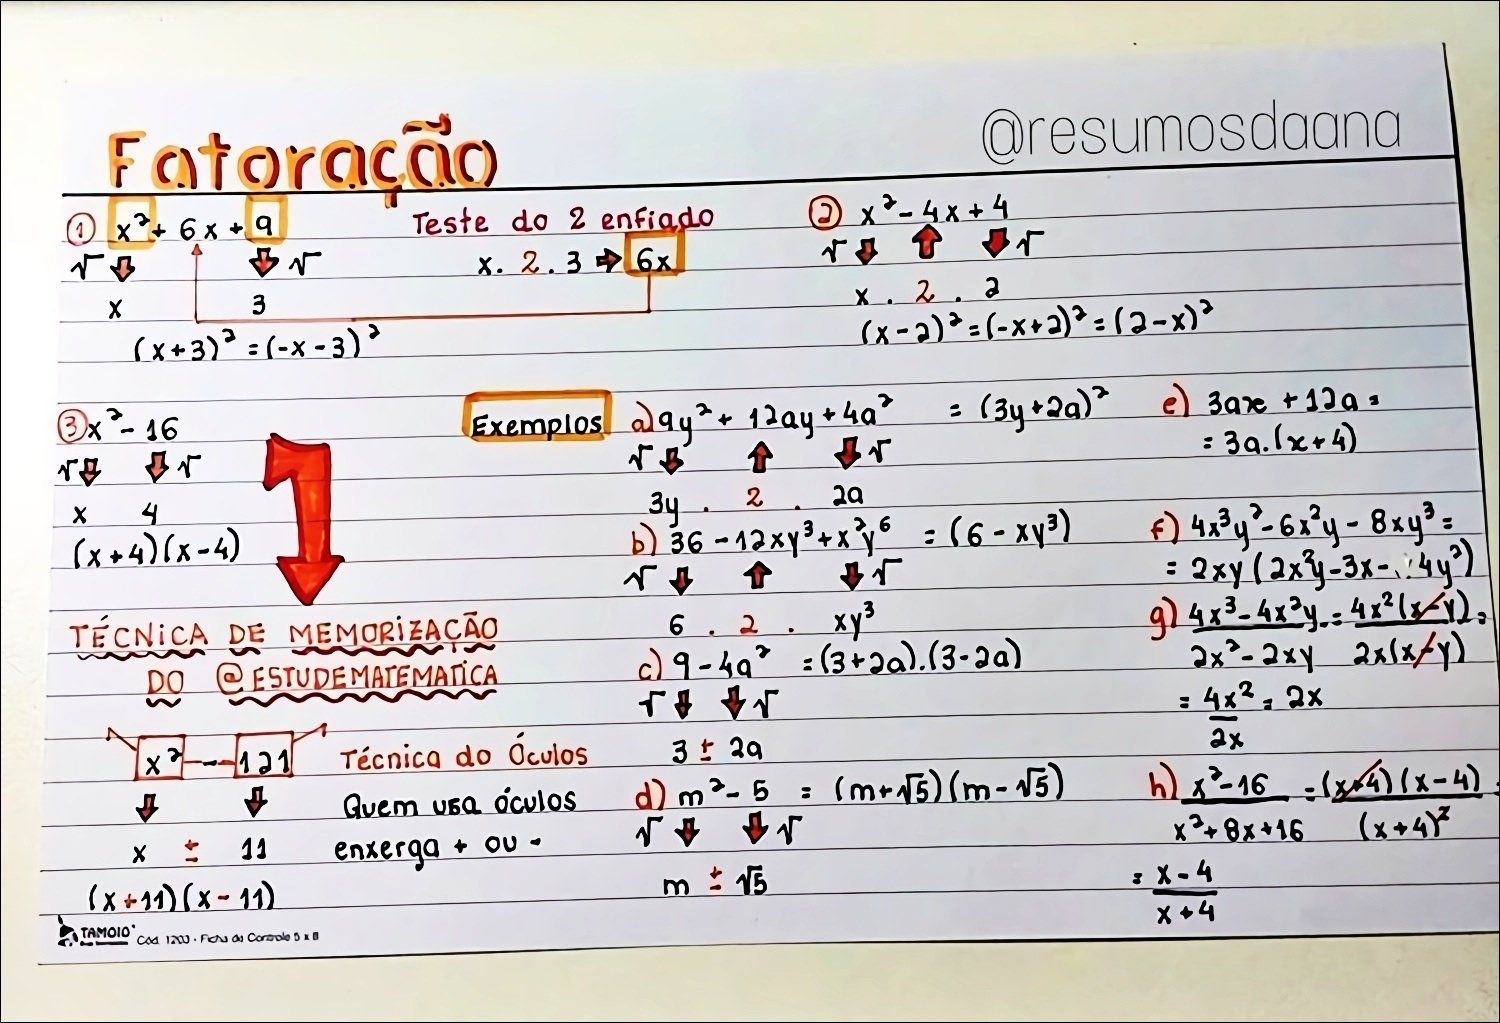 Fatoração
@resumosdaana
① x² + 6x + 9
√ √
x 3
(x+3)² = (-x-3)²
Teste do 2 enfiado
x . 2 . 3 ➡ 6x
② x² - 4x + 4
√ √
x . 2 . 2
(x-2)² = (-x+2)² = (2-x)²
③ x² - 16
√ √
x 4
(x+4)(x-4)
TÉCNICA DE MEMORIZAÇÃO
DO @ESTUDEMATEMATICA
x² - 121
x ± 11
(x+11)(x-11)
Técnica do Óculos
Quem usa óculos
enxerga + ou -
Exemplos
a) 9y² + 12ay + 4a² = (3y+2a)²
√ √
3y . 2 . 2a
b) 36 - 12xy³ + x²y⁶ = (6 - xy³)
√ √
6 . 2 . xy³
c) 9 - 4a² = (3+2a).(3-2a)
√ √
3 ± 2a
d) m² - 5 = (m+√5)(m-√5)
√ √
m ± √5
e) 3ax + 12a =
= 3a.(x+4)
f) 4x³y² - 6x²y - 8xy³ =
= 2xy(2x²y - 3x - 4y²)
g) 4x³ - 4x²y = 4x²(x-y) =
2x² - 2xy 2x(x-y)
= 4x² = 2x
2x
h) x² - 16 = (x+4)(x-4) =
x² + 8x + 16 (x+4)²
= x - 4
x + 4
TAMOIO
Cód. 1203 - Ficha de Controle 5 x 8